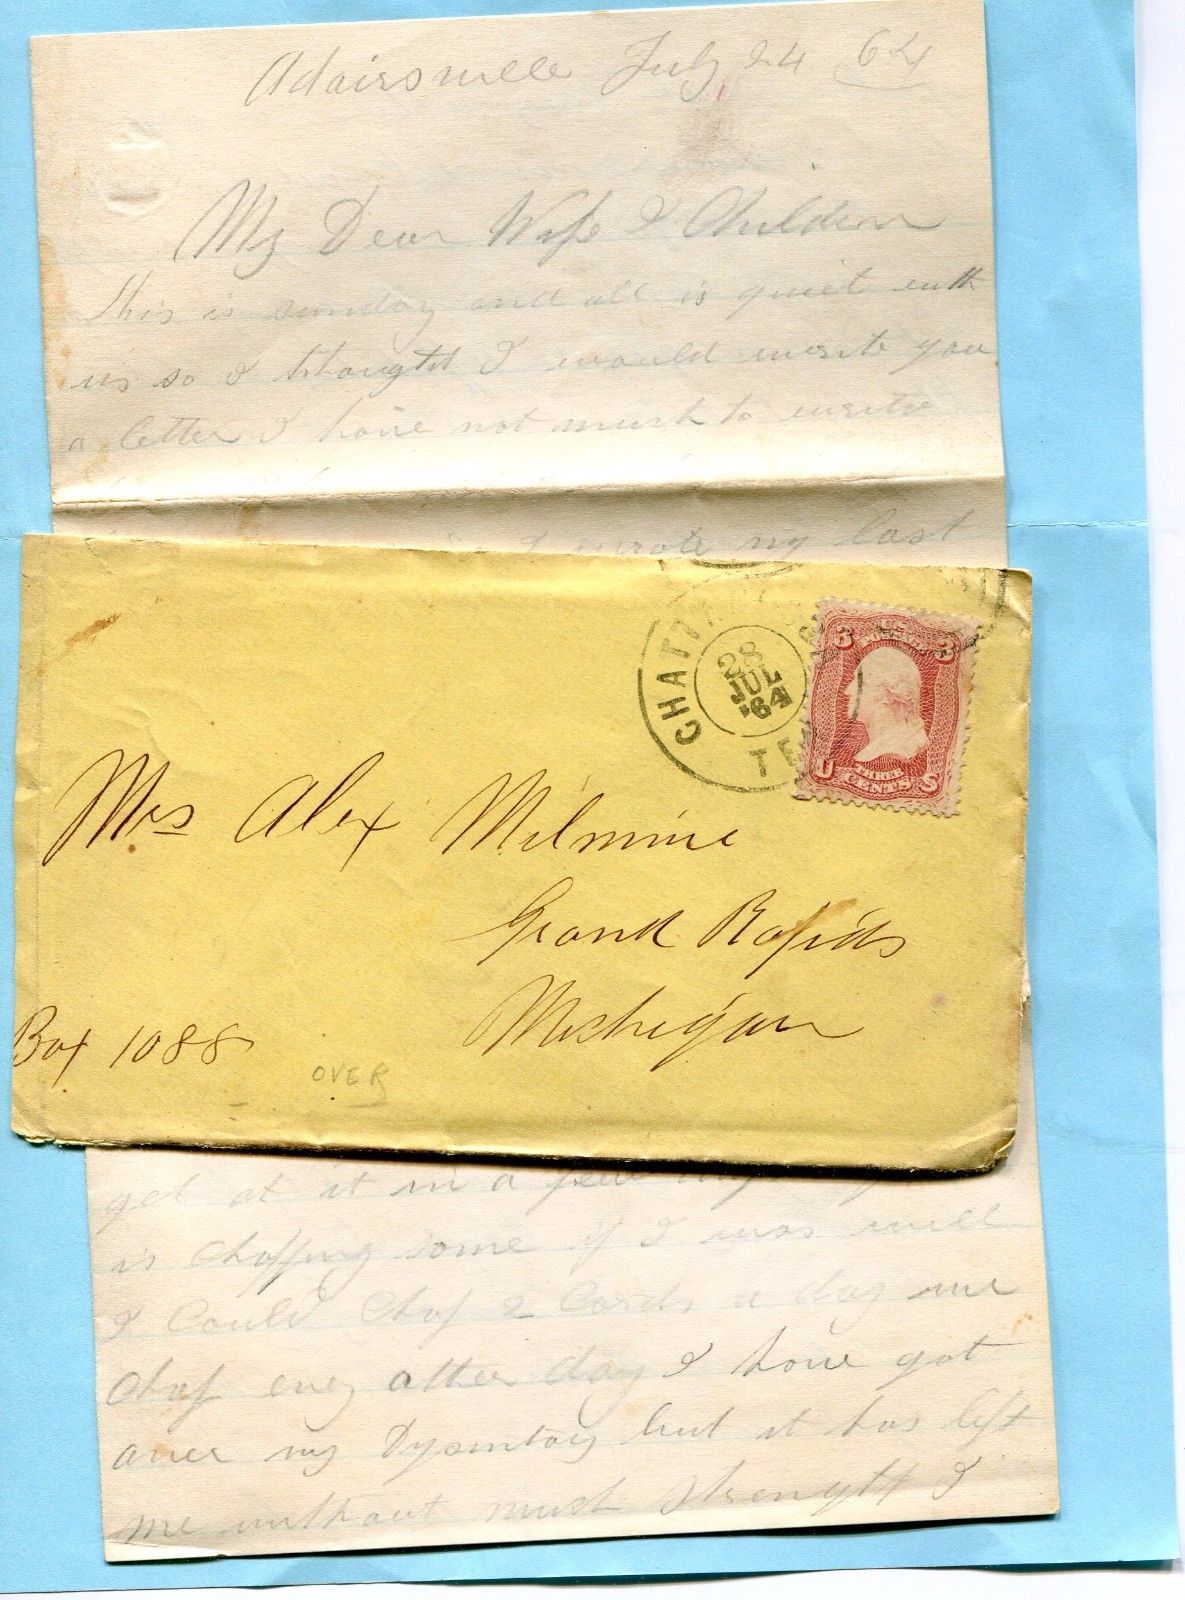 Adairsville July 24 64
My Dear Wife & Children
This is sunday and all is quiet with
us so I thought I would write you
a letter I have not much to write
I wrote my last
CHATTA
TEN
28
JUL
'64
3 U.S. 3
POSTAGE
THREE
U CENTS S
Mrs Alex Milmine
Grand Rapids
Michigan
Box 1088
OVER
get at it in a few
is Choping some if I was well
I Could Chop 2 Cords a day we
Chop evey other day I have got
over my Dysentary but it has left
me without much strenght I